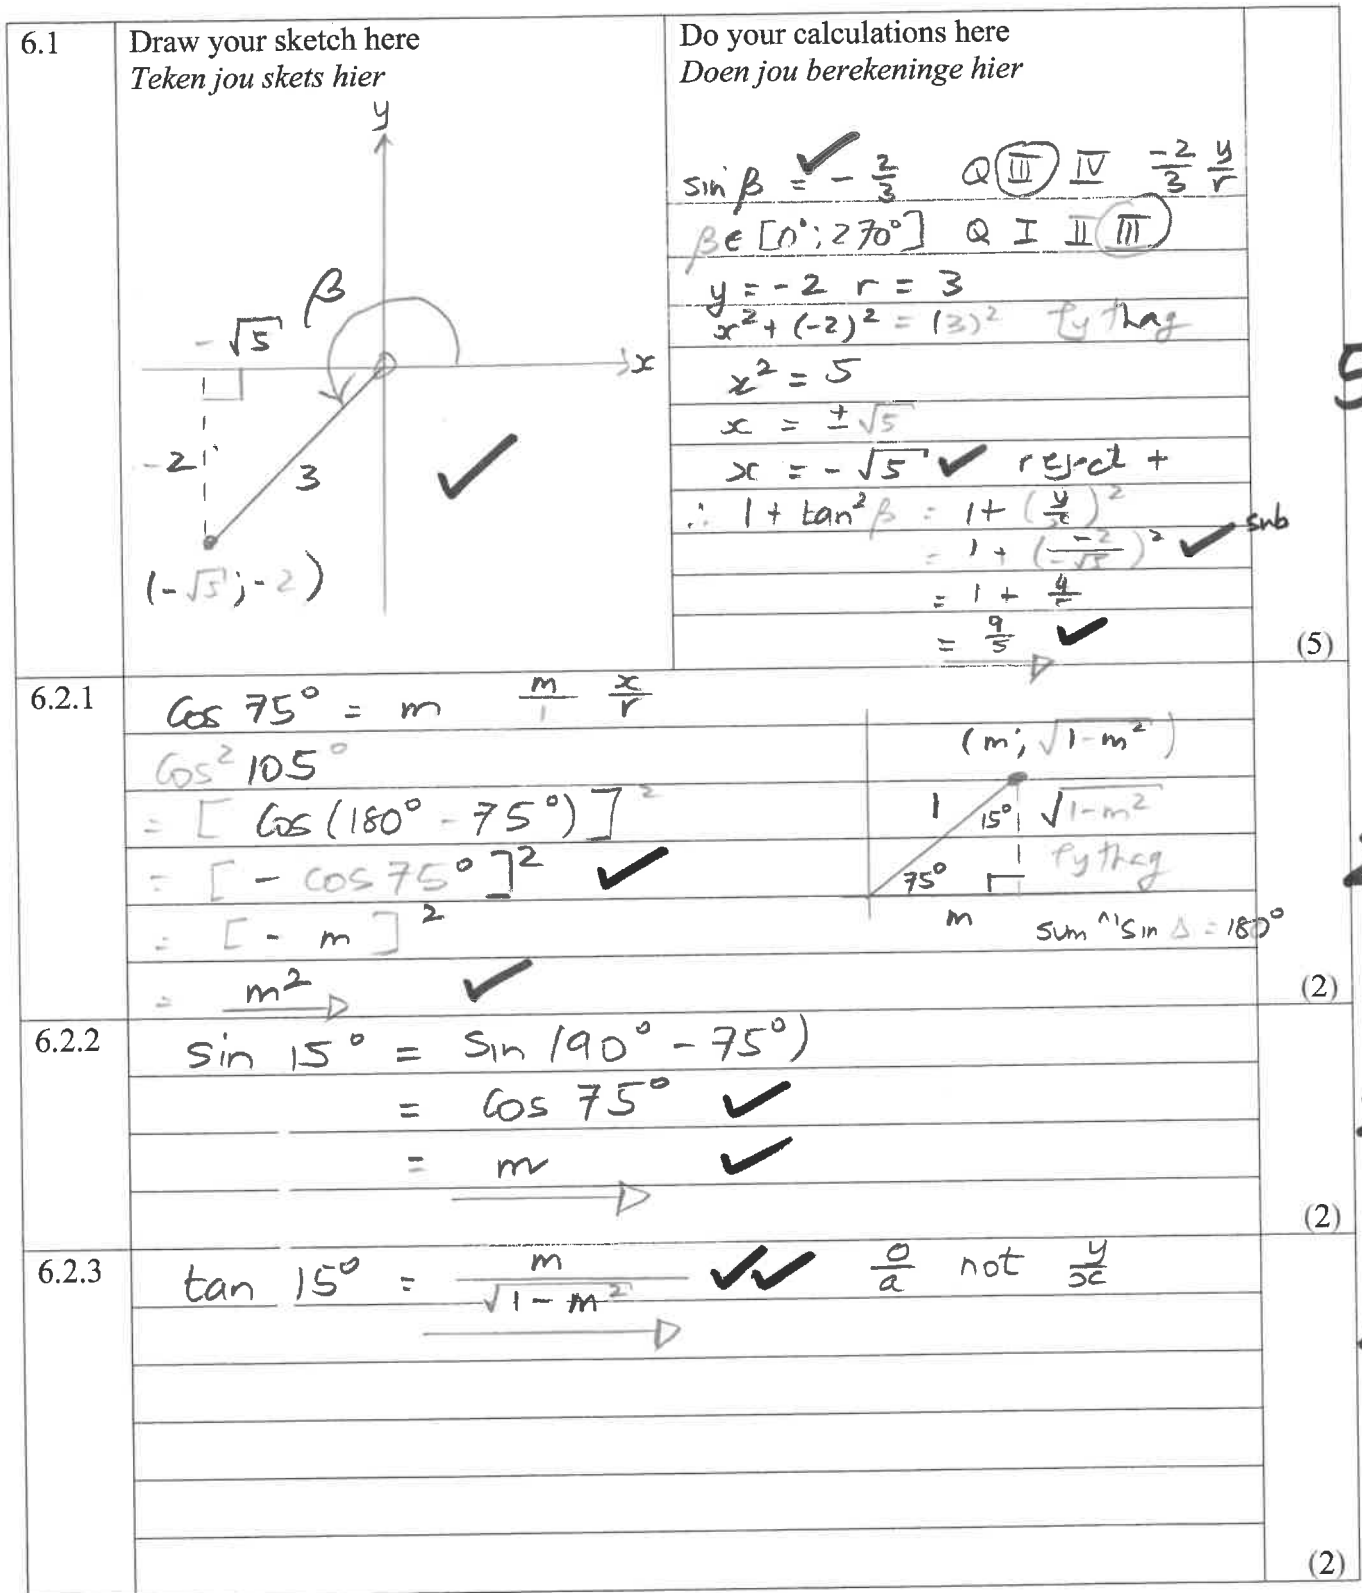 6.1
Draw your sketch here
Teken jou skets hier
y
β
-√5
x
-2
3
(-√5 ; -2)
Do your calculations here
Doen jou berekeninge hier
sin β = - 2/3 Q III IV -2/3 y/r
β ∈ [0°; 270°] Q I II III
y = -2 r = 3
x² + (-2)² = (3)² Pythag
x² = 5
x = ± √5
x = - √5 reject +
∴ 1 + tan² β = 1 + (y/x)²
= 1 + (-2/-√5)² sub
= 1 + 4/5
= 9/5
(5)
5
6.2.1
cos 75° = m m/1 x/r
cos² 105°
= [ cos (180° - 75°) ]²
= [ - cos 75° ]²
= [ - m ]²
= m²
(m ; √1-m²)
1 15° √1-m²
75° Pythag
m sum ^s in Δ = 180°
(2)
6.2.2
sin 15° = sin (90° - 75°)
= cos 75°
= m
(2)
6.2.3
tan 15° = m/√1-m² o/a not y/x
(2)